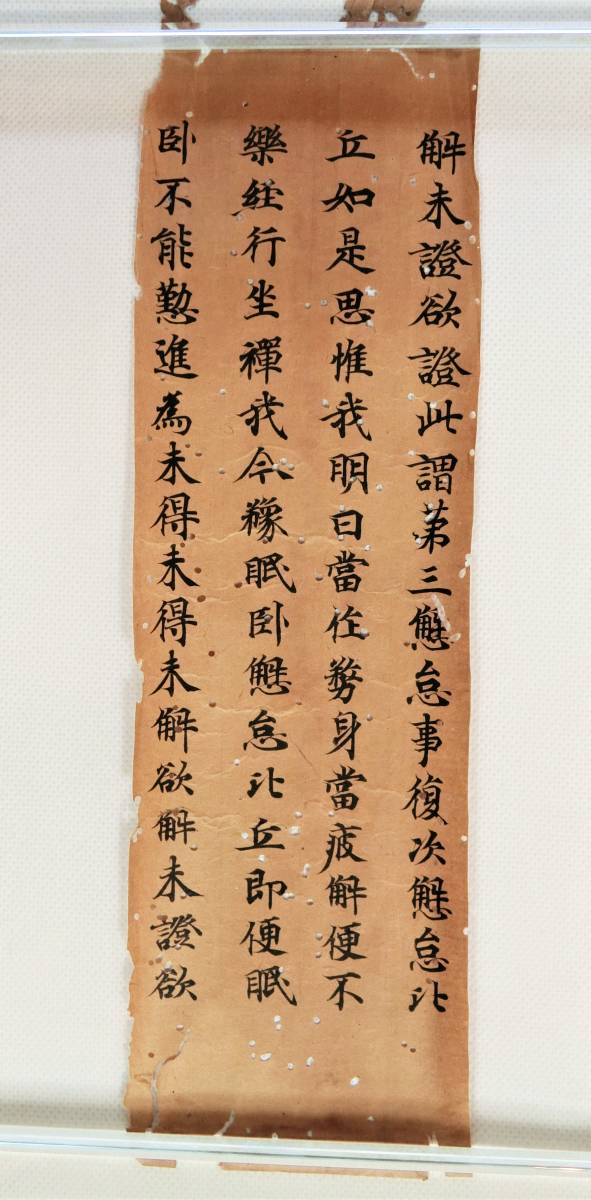 解未證欲證此謂第三懈怠事復次懈怠比
丘如是思惟我明日當作務身當疲解便不
樂經行坐禪我今豫眠卧懈怠比丘即便眠
卧不能懃進為未得未得未解欲解未證欲